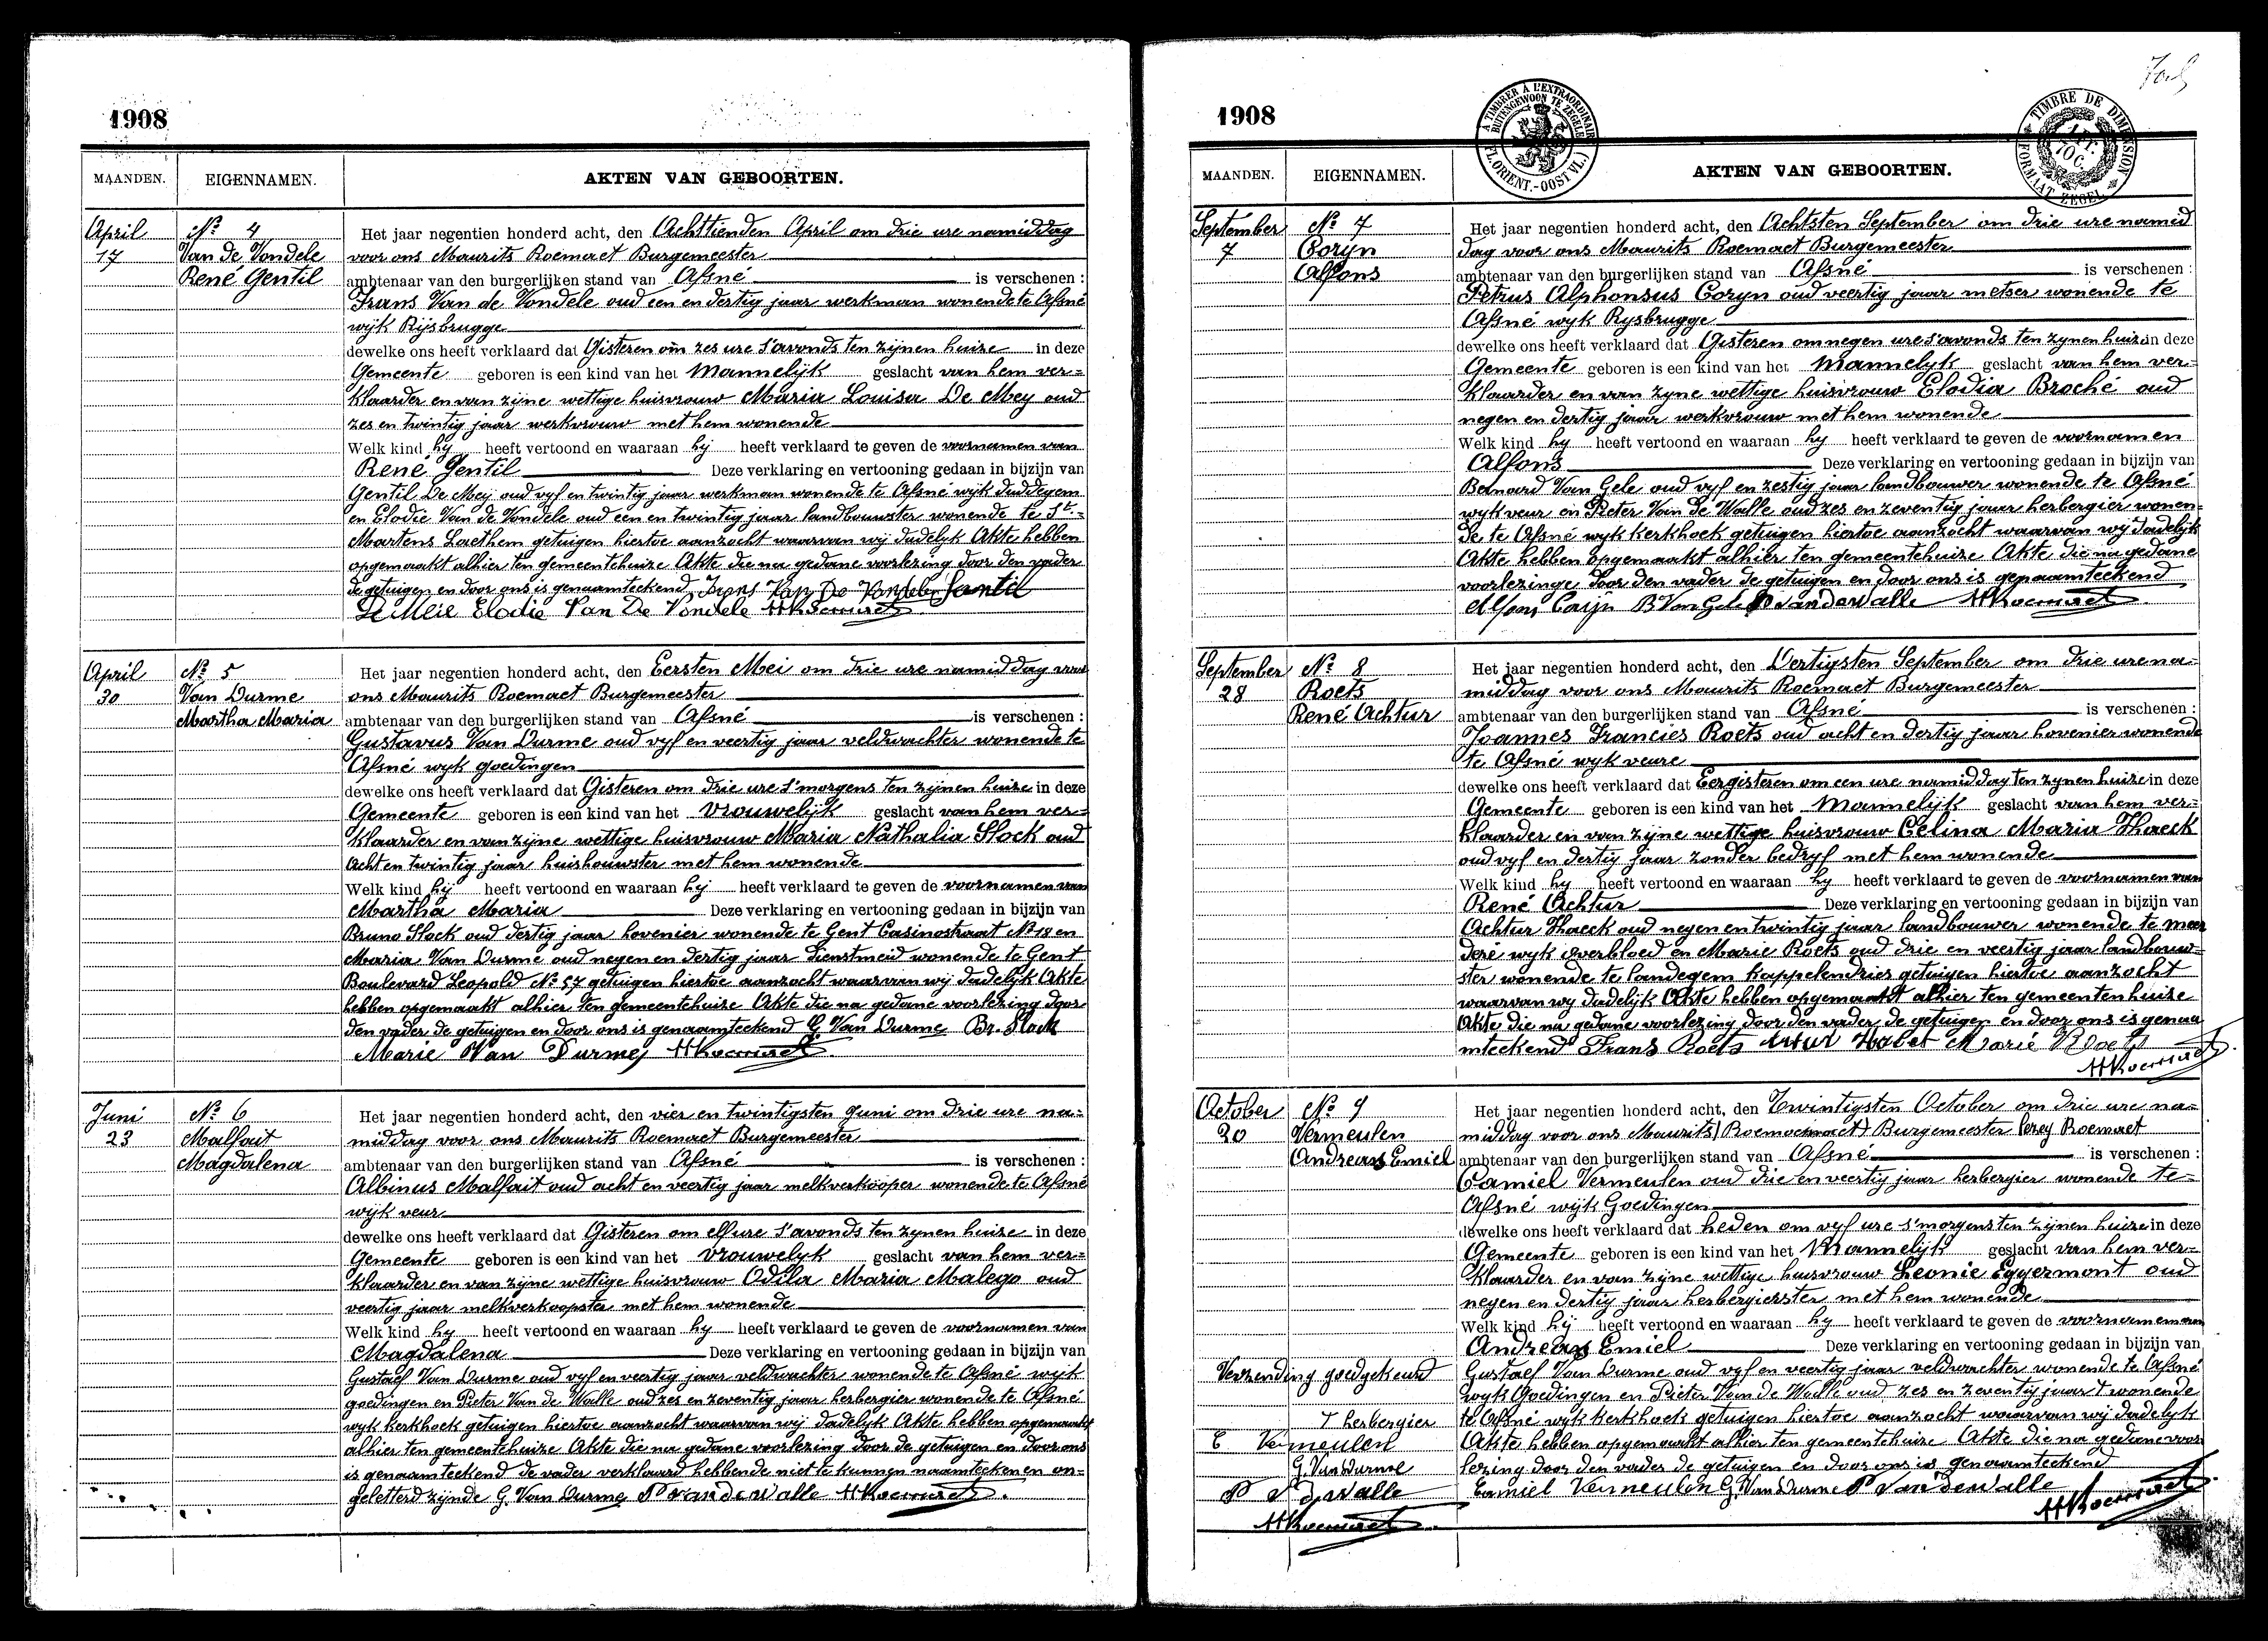 1908
MAANDEN. EIGENNAMEN. AKTEN VAN GEBOORTEN.
April
17
No 4
Van de Vondele
René Gentil
Het jaar negentien honderd acht, den Achttienden April om drie ure namiddag
voor ons Maurits Roemaet Burgemeester
ambtenaar van den burgerlijken stand van Afsné is verschenen :
Frans Van de Vondele oud een en dertig jaar werkman wonende te Afsné
wijk Rijsbrugge
dewelke ons heeft verklaard dat Gisteren om zes ure s'avonds ten zijnen huize in deze
Gemeente geboren is een kind van het Mannelijk geslacht van hem ver=
klaarder en van zijne wettige huisvrouw Maria Louisa De Mey oud
zes en twintig jaar werkvrouw met hem wonende
Welk kind hy heeft vertoond en waaraan hij heeft verklaard te geven de voornamen van
René Gentil Deze verklaring en vertooning gedaan in bijzijn van
Gentil De Meij oud vyf en twintig jaar werkman wonende te Afsné wijk duddegem
en Elodie Van de Vondele oud een en twintig jaar landbouwster wonende te St=
Martens Laethem getuigen hiertoe aanzocht waarvan wij dadelyk Akte hebben
opgemaakt alhier ten gemeentehuize Akte die na gedane voorlezing door den vader
de getuigen en door ons is genaamteekend Frans Van De Vondelen Gentil
De Meie Elodie Van De Vondele MRoemaet
April
30
No 5
Van Durme
Martha Maria
Het jaar negentien honderd acht, den Eersten Mei om drie ure namiddag voor
ons Maurits Roemaet Burgemeester
ambtenaar van den burgerlijken stand van Afsné is verschenen :
Gustavus Van Durme oud vyf en veertig jaar veldwachter wonende te
Afsné wyk goedingen
dewelke ons heeft verklaard dat Gisteren om drie ure s'morgens ten zijnen huize in deze
Gemeente geboren is een kind van het vrouwelijk geslacht van hem ver=
klaarder en van zijne wettige huisvrouw Maria Nathalia Stock oud
acht en twintig jaar huishouwster met hem wonende
Welk kind hij heeft vertoond en waaraan hij heeft verklaard te geven de voornamen van
Martha Maria Deze verklaring en vertooning gedaan in bijzijn van
Bruno Stock oud dertig jaar hovenier wonende te Gent Casinostraat No 18 en
Maria Van Durme oud negen en dertig jaar dienstmeid wonende te Gent
Boulevard Leopold No 57 getuigen hiertoe aanzocht waarvan wij dadelijk Akte
hebben opgemaakt alhier ten gemeentehuize Akte die na gedane voorlezing door
den vader de getuigen en door ons is genaamteekend G. Van Durme Br. Stock
Marie Van Durme MRoemaet
Juni
23
No 6
Malfait
Magdalena
Het jaar negentien honderd acht, den vier en twintigsten Juni om drie ure na=
middag voor ons Maurits Roemaet Burgemeester
ambtenaar van den burgerlijken stand van Afsné is verschenen :
Albinus Malfait oud acht en veertig jaar melkverkooper wonende te Afsné
wijk veur
dewelke ons heeft verklaard dat Gisteren om elf ure s'avonds ten zynen huize in deze
Gemeente geboren is een kind van het vrouwelyk geslacht van hem ver=
klaarder en van zijne wettige huisvrouw Odila Maria Malego oud
veertig jaar melkverkoopster met hem wonende
Welk kind hy heeft vertoond en waaraan hy heeft verklaard te geven de voornamen van
Magdalena Deze verklaring en vertooning gedaan in bijzijn van
Gustaef Van Durme oud vyf en veertig jaar veldwachter wonende te Afsné wijk
goedingen en Pieter Van de Walle oud zes en zeventig jaar herbergier wonende te Afsné
wyk kerkhoek getuigen hiertoe aanzocht waarvan wij dadelyk Akte hebben opgemaakt
alhier ten gemeentehuize Akte die na gedane voorlezing door de getuigen en door ons
is genaamteekend de vader verklaard hebbende niet te kunnen naamteekenen on=
geletterd zijnde G. Van Durme P Van de Walle MRoemaet
1908
A TIMBRER A L'EXTRAORDINAIRE
BUITENGEWOON TE ZEGELEN
(FL. ORIENT.-OOST VL.)
TIMBRE DE DIMENSION
FORMAAT ZEGEL
MAANDEN. EIGENNAMEN. AKTEN VAN GEBOORTEN.
September
7
No 7
Coryn
Alfons
Het jaar negentien honderd acht, den Achtsten September om drie ure namid
dag voor ons Maurits Roemaet Burgemeester
ambtenaar van den burgerlijken stand van Afsné is verschenen :
Petrus Alphonsus Coryn oud veertig jaar metser wonende te
Afsné wyk Rysbrugge
dewelke ons heeft verklaard dat Gisteren om negen ure s'avonds ten zynen huize in deze
Gemeente geboren is een kind van het Mannelyk geslacht van hem ver=
klaarder en van zyne wettige huisvrouw Elodia Broché oud
negen en dertig jaar werkvrouw met hem wonende
Welk kind hy heeft vertoond en waaraan hy heeft verklaard te geven de voornamen
Alfons Deze verklaring en vertooning gedaan in bijzijn van
Bernard Van Gele oud vyf en zestig jaar landbouwer wonende te Afsné
wyk veur en Pieter Van de Walle oud zes en zeventig jaar herbergier wonen=
de te Afsné wyk kerkhoek getuigen hiertoe aanzocht waarvan wij dadelijk
Akte hebben opgemaakt alhier ten gemeentehuize Akte die na gedane
voorlezinge door den vader de getuigen en door ons is genaamteekend
Alfons Corijn B Van Gele P Van de Walle MRoemaet
September
28
No 8
Roets
René Achtur
Het jaar negentien honderd acht, den Dertigsten September om drie ure na=
middag voor ons Maurits Roemaet Burgemeester
ambtenaar van den burgerlijken stand van Afsné is verschenen :
Joannes Francies Roets oud acht en dertig jaar hovenier wonende
te Afsné wyk veure
dewelke ons heeft verklaard dat Eergisteren om een ure namiddag ten zynen huize in deze
Gemeente geboren is een kind van het Mannelijk geslacht van hem ver=
klaarder en van zijne wettige huisvrouw Celina Maria Haeck
oud vyf en dertig jaar zonder bedryf met hem wonende
Welk kind hy heeft vertoond en waaraan hy heeft verklaard te geven de voornamen van
René Achtur Deze verklaring en vertooning gedaan in bijzijn van
Achtur Haeck oud negen en twintig jaar landbouwer wonende te meer
deré wyk overbloed en Marie Roets oud drie en veertig jaar landbouw=
ster wonende te landegem kappelendries getuigen hiertoe aanzocht
waarvan wy dadelijk Akte hebben opgemaakt alhier ten gemeenten huize
Akte die na gedane voorlezing door den vader de getuigen en door ons is genaa
mteekend Frans Roets Artur Marie Roets
MRoemaet
October
20
No 9
Vermeulen
Andreas Emiel
Het jaar negentien honderd acht, den Twintigsten October om drie ure na=
middag voor ons Maurits Burgemeester Roemaet
ambtenaar van den burgerlijken stand van Afsné is verschenen :
Camiel Vermeulen oud drie en veertig jaar herbergier wonende te=
Afsné wijk Goedingen
dewelke ons heeft verklaard dat heden om vyf ure s'morgens ten zijnen huize in deze
Gemeente geboren is een kind van het Mannelijk geslacht van hem ver=
klaarder en van zijne wettige huisvrouw Leonie Eggermont oud
negen en dertig jaar herbergierster met hem wonende
Welk kind hij heeft vertoond en waaraan hy heeft verklaard te geven de voornamen van
Andreas Emiel Deze verklaring en vertooning gedaan in bijzijn van
Gustaef Van Durme oud vyf en veertig jaar veldwachter wonende te Afsné
wyk Goedingen en Pieter Van de Walle oud zes en zeventig jaar T wonende
te Afsné wijk kerkhoek getuigen hiertoe aanzocht waarvan wij dadelyk
Akte hebben opgemaakt alhier ten gemeentehuize Akte die na gedane voor
lezing door den vader de getuigen en door ons is genaamteekend
Camiel Vermeulen G. Van Durme P Van de Walle
MRoemaet
Verzending goedgekeurd
T herbergier
C Vermeulen
G. Van Durme
P V d Walle
MRoemaet